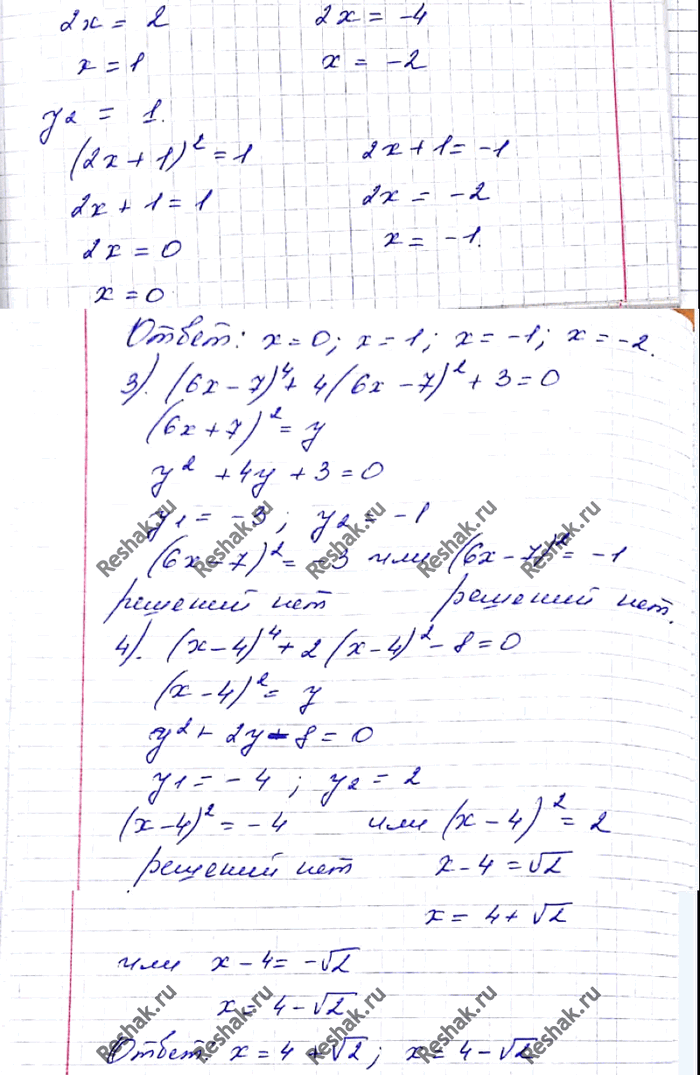 2x = 2 2x = -4
x = 1 x = -2
y2 = 1.
(2x + 1)² = 1 2x + 1 = -1
2x + 1 = 1 2x = -2
2x = 0 x = -1.
x = 0
Ответ: x = 0; x = 1; x = -1; x = -2.
3). (6x - 7)⁴ + 4(6x - 7)² + 3 = 0
(6x + 7)² = y
y² + 4y + 3 = 0
y1 = -3; y2 = -1
(6x - 7)² = -3 или (6x - 7)² = -1
решений нет решений нет.
4). (x - 4)⁴ + 2(x - 4)² - 8 = 0
(x - 4)² = y
y² + 2y - 8 = 0
y1 = -4; y2 = 2
(x - 4)² = -4 или (x - 4)² = 2
решений нет x - 4 = √2
x = 4 + √2
или x - 4 = -√2
x = 4 - √2
Ответ: x = 4 + √2; x = 4 - √2
Reshak.ru Reshak.ru Reshak.ru Reshak.ru Reshak.ru
Reshak.ru Reshak.ru Reshak.ru Reshak.ru Reshak.ru